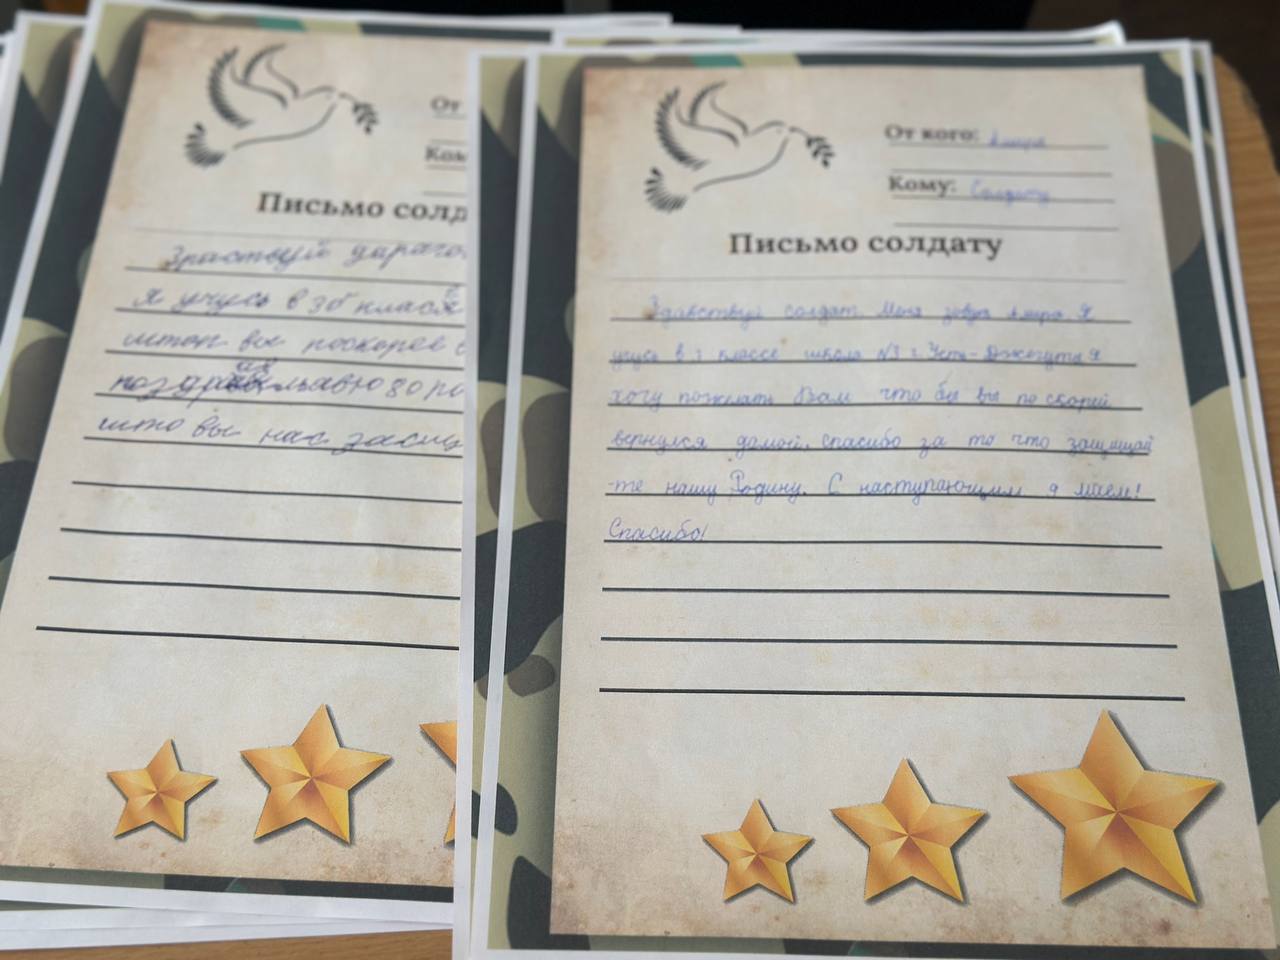 От
Ком
Письмо солд
Зраствуй дараго
Я учусь в 3б класе
штоп вы поскорее
што вы нас защи
От кого: Амира
Кому: Солдату
Письмо солдату
Здавствуй солдат. Меня зовут Амира Я
учусь в 3 классе школа N3 г. Усть-Джегута Я
хочу пожелать Вам что бы вы по скорей
вернулся домой. Спасибо за то что защищай
-те нашу Родину. С наступающим 9 маем!
Спасибо!